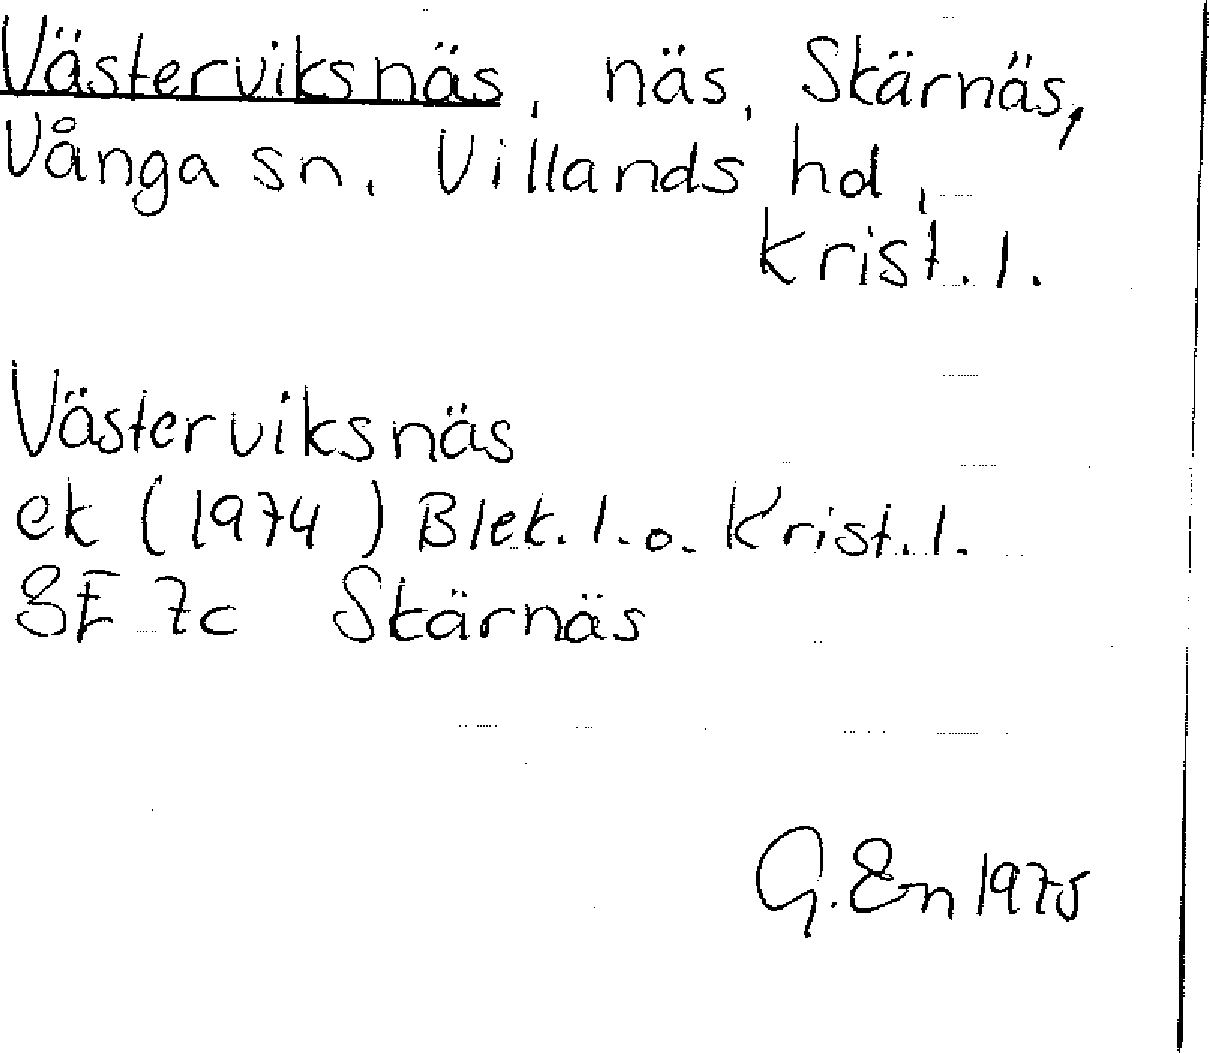 Västerviksnäs, näs, Skärnäs,
Vånga sn, Villands hd,
Krist. l.
Västerviksnäs
ek (1974) Blek. l. o. Krist. l.
3E 7c Skärnäs
G. En 1975